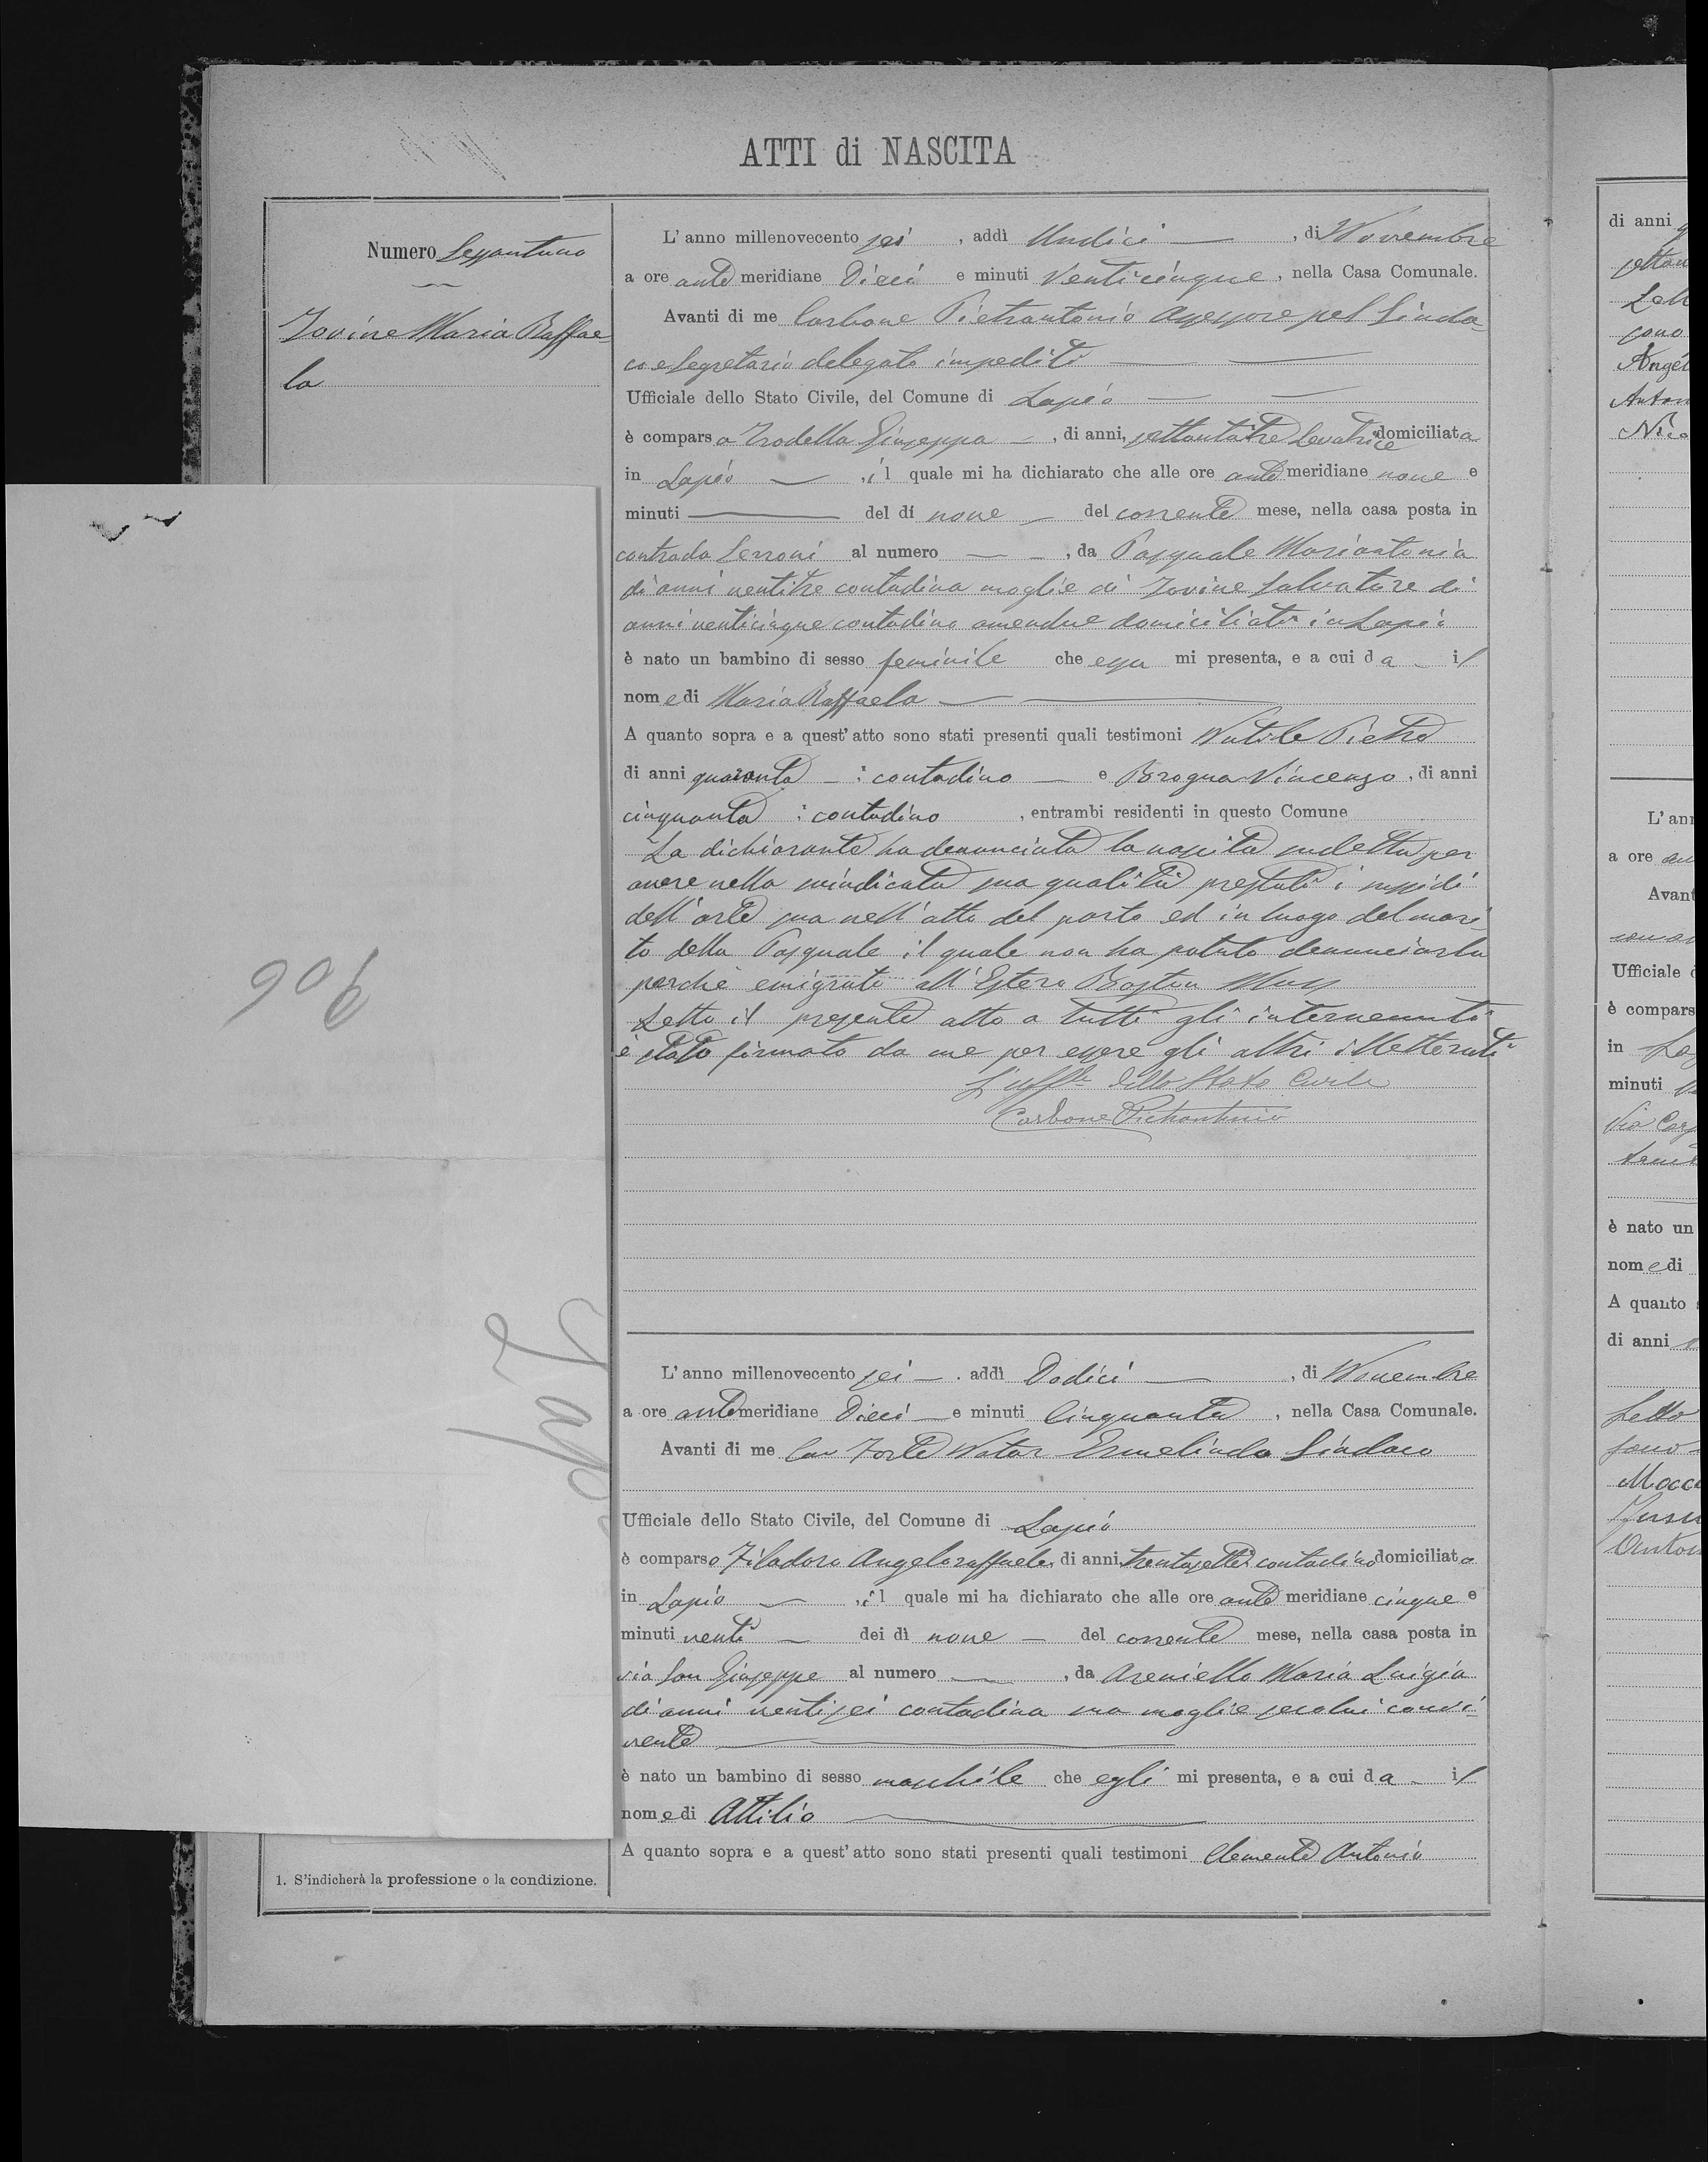 ATTI di NASCITA
Numero Sessantuno
Iovine Maria Raffae-
la
L'anno millenovecento sei, addì Undici, di Novembre
a ore antemeridiane Dieci e minuti Venticinque, nella Casa Comunale.
Avanti di me Carbone Pietrantonio Assessore pel Sinda-
co e Segretario delegato impediti
Ufficiale dello Stato Civile, del Comune di Lapio
è comparsa Trodella Giuseppa, di anni, settantatre Levatrice domiciliata
in Lapio, il quale mi ha dichiarato che alle ore antemeridiane nove e
minuti del dì nove del corrente mese, nella casa posta in
contrada Serroni al numero, da Pasquale Mariantonia
di anni ventitre contadina moglie di Iovine Salvatore di
anni venticinque contadino amendue domiciliati in Lapio
è nato un bambino di sesso feminile che essa mi presenta, e a cui da il
nome di Maria Raffaela
A quanto sopra e a quest'atto sono stati presenti quali testimoni Nutile Pietro
di anni quaranta, contadino e Brogna Vincenzo, di anni
cinquanta, contadino, entrambi residenti in questo Comune
La dichiarante ha denunciata la nascita sudetta per
avere nella suindicata sua qualità prestati i sussidi
dell'arte sua nell'atto del parto ed in luogo del mari-
to della Pasquale il quale non ha potuto denunciarla
perchè emigrato all'Estero Boston Mass
Letto il presente atto a tutti gli intervenuti
è stato firmato da me per essere gli altri illetterati
L'uff.le dello Stato Civile
Carbone Pietrantonio
906
Lapio
L'anno millenovecento sei, addì Dodici, di Novembre
a ore antemeridiane Dieci e minuti Cinquanta, nella Casa Comunale.
Avanti di me Cav Forte Notar Ermelindo Sindaco
Ufficiale dello Stato Civile, del Comune di Lapio
è comparso Filadoro Angeloraffaele, di anni trentasette contadino domiciliato
in Lapio, il quale mi ha dichiarato che alle ore antemeridiane cinque e
minuti venti dei dì nove del corrente mese, nella casa posta in
via San Giuseppe al numero, da Areniello Maria Luigia
di anni ventisei contadina sua moglie secolui convi-
vente
è nato un bambino di sesso maschile che egli mi presenta, e a cui da il
nome di Attilio
A quanto sopra e a quest'atto sono stati presenti quali testimoni Clemente Antonio
1. S'indicherà la professione o la condizione.
di anni
L'an
a ore
Avant
Ufficiale
è compars
in
minuti
è nato un
nome di
A quanto
di anni
Letto